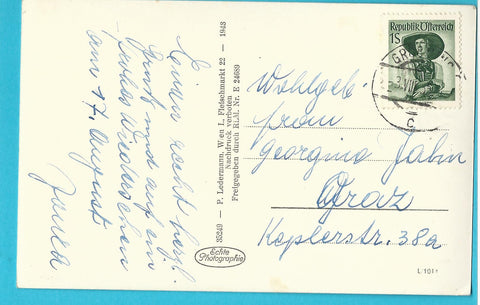 Einen recht herzl.
Gruß und auf ein
frohes Wiedersehen
am 17. August
35249 — P. Ledermann, Wien I., Fleischmarkt 22 — 1943
Nachdruck verboten
Freigegeben durch RLM. Nr. E 24689
Echte
Photographie
Republik Österreich
1S
GRAZ
c
Wohlgeb.
Georgina
Graz
Keplerstr. 38a
L 101